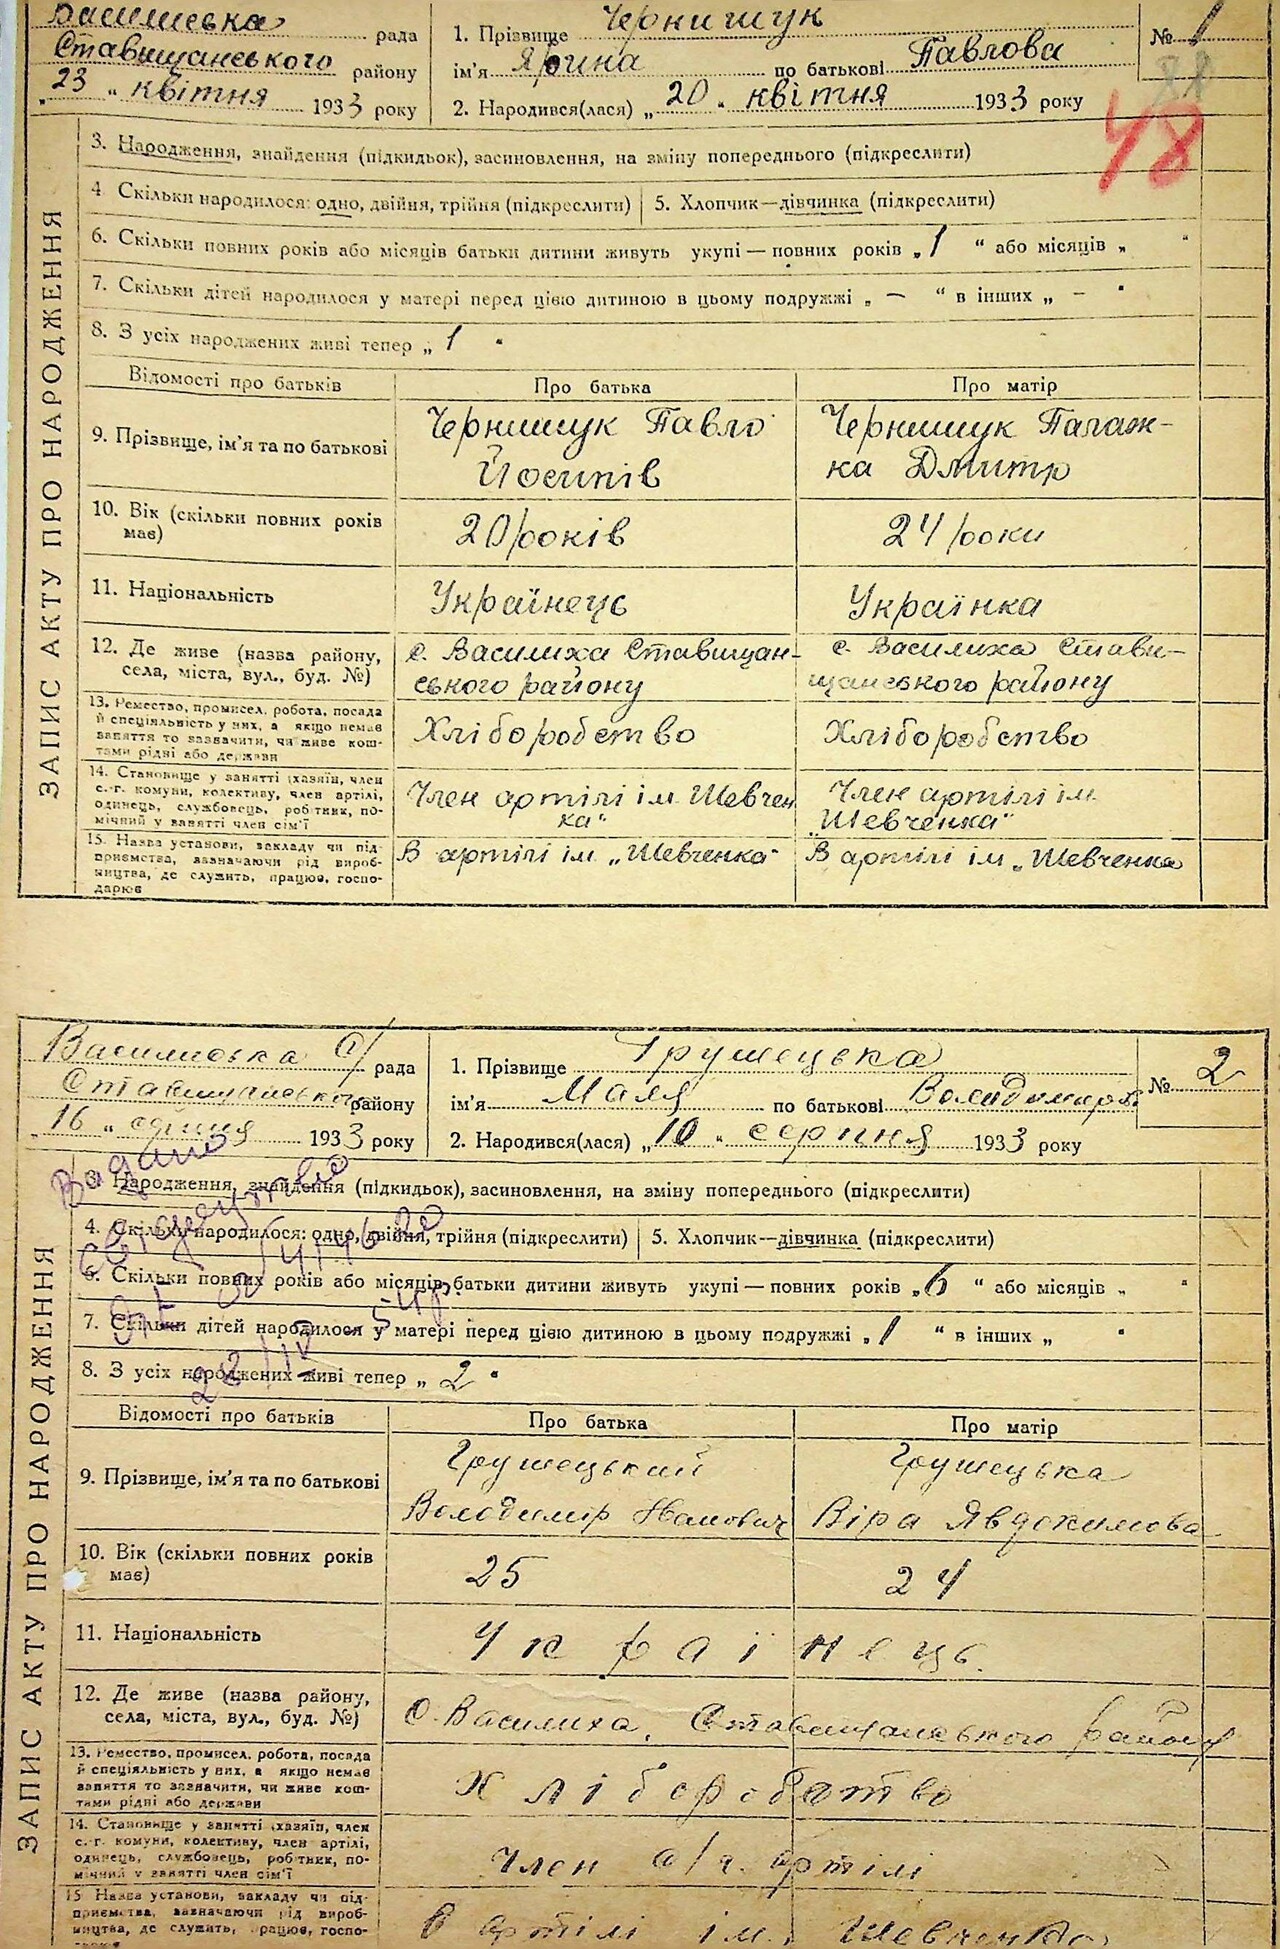 Василівська рада
Ставищанського району
„ 23 “ квітня 1933 року
1. Прізвище Чернишук
ім'я Ярина по батькові Павлова
2. Народився(лася) „ 20 “ квітня 1933 року
№ 1
88
48
ЗАПИС АКТУ ПРО НАРОДЖЕННЯ
3. Народження, знайдення (підкидьок), засиновлення, на зміну попереднього (підкреслити)
4. Скільки народилося: одно, двійня, трійня (підкреслити) 5. Хлопчик—дівчинка (підкреслити)
6. Скільки повних років або місяців батьки дитини живуть укупі — повних років „ 1 “ або місяців „ “
7. Скільки дітей народилося у матері перед цією дитиною в цьому подружжі „ — “ в інших „ — “
8. З усіх народжених живі тепер „ 1 “
Відомості про батьків Про батька Про матір
9. Прізвище, ім'я та по батькові
Чернишук Павло
Йосипів
Чернишук Палаж-
ка Дмитр
10. Вік (скільки повних років
має)
20 років
24 роки
11. Національність Українець Українка
12. Де живе (назва району,
села, міста, вул., буд. №)
с. Василиха Ставищан-
ського району
с. Василиха Стави-
щанського району
13. Ремество, промисел, робота, посада
й спеціяльність у них, а якщо немає
заняття то зазначити, чи живе кош-
тами рідні або держави
Хліборобство
Хліборобство
14. Становище у занятті (хазяїн, член
с.-г. комуни, колективу, член артілі,
одинець, службовець, робітник, по-
мічний у занятті член сім'ї
Член артілі ім. Шевчен
ка“
Член артілі ім.
„Шевченка“
15. Назва установи, закладу чи під-
приємства, зазначаючи рід вироб-
ництва, де служить, працює, госпо-
дарює
В артілі ім. „Шевченка“
В артілі ім „Шевченка
Василивська с/ рада
Ставищанського району
„ 16 “ серпня 1933 року
1. Прізвище Грушецька
ім'я Маля по батькові Володимирів.
2. Народився(лася) „ 10 “ серпня 1933 року
№ 2
ЗАПИС АКТУ ПРО НАРОДЖЕННЯ
3. Народження, знайдення (підкидьок), засиновлення, на зміну попереднього (підкреслити)
4. Скільки народилося: одно, двійня, трійня (підкреслити) 5. Хлопчик—дівчинка (підкреслити)
6. Скільки повних років або місяців батьки дитини живуть укупі — повних років „ 6 “ або місяців „ “
7. Скільки дітей народилося у матері перед цією дитиною в цьому подружжі „ 1 “ в інших „ “
8. З усіх народжених живі тепер „ 2 “
Відомості про батьків Про батька Про матір
9. Прізвище, ім'я та по батькові
Грушецький
Володимір Іванович
Грушецька
Віра Явдокимова
10. Вік (скільки повних років
має)
25
24
11. Національність Українець.
12. Де живе (назва району,
села, міста, вул., буд. №)
с. Василиха, Ставищанського району
13. Ремество, промисел, робота, посада
й спеціяльність у них, а якщо немає
заняття то зазначити, чи живе кош-
тами рідні або держави
Хліборобство
14. Становище у занятті (хазяїн, член
с.-г. комуни, колективу, член артілі,
одинець, службовець, робітник, по-
мічний у занятті член сім'ї
Член с/г. артілі
15 Назва установи, закладу чи під-
приємства, зазначаючи рід вироб-
ництва, де служить, працює, госпо-
В артілі ім. Шевченка